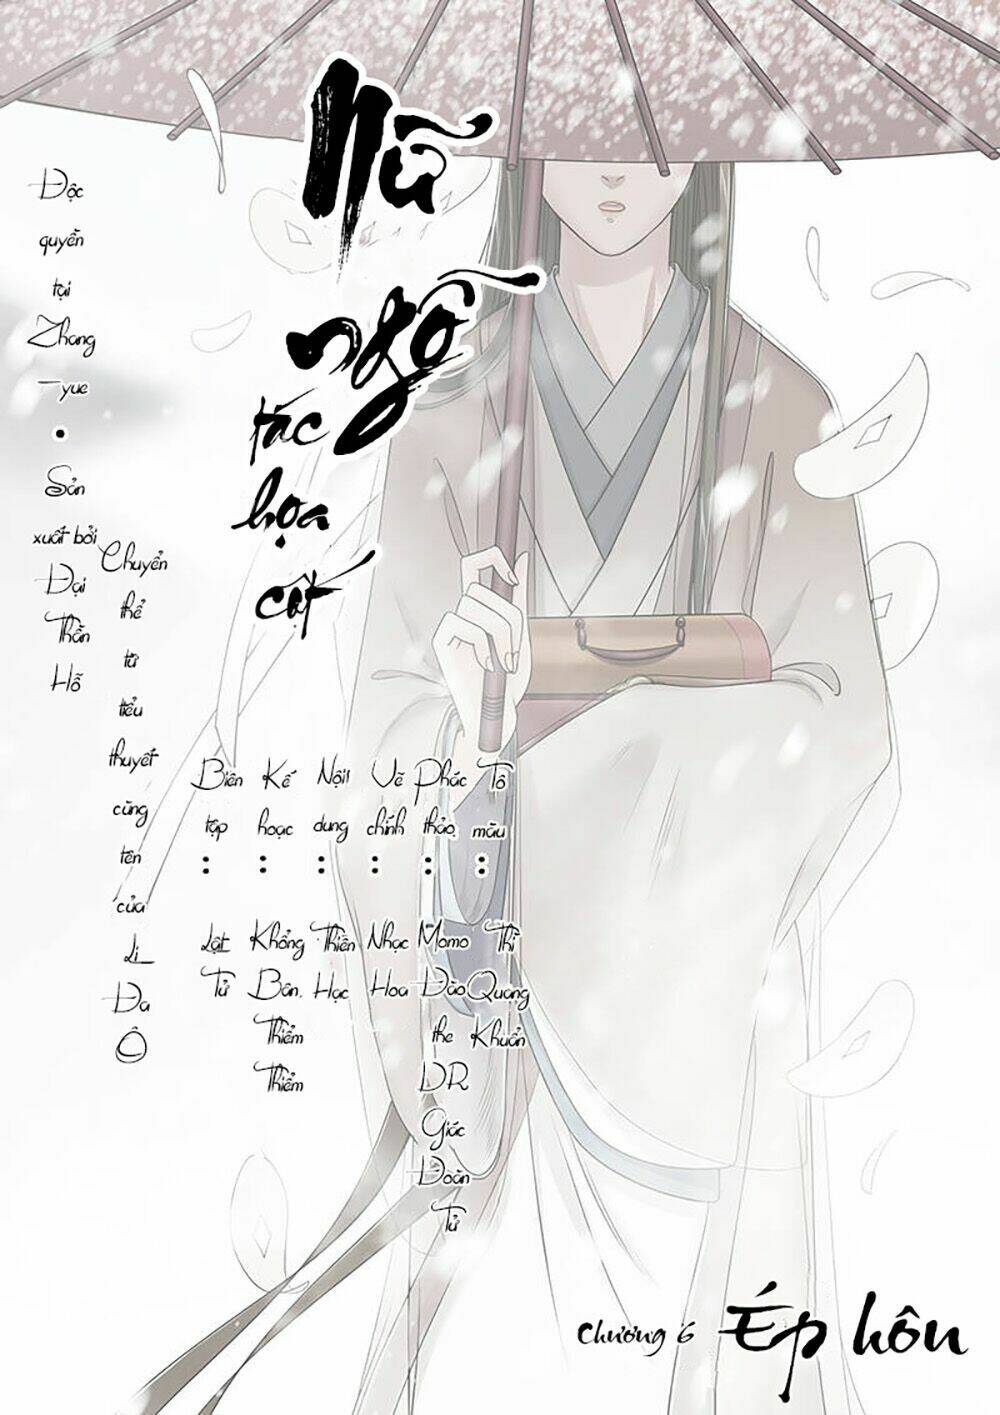 Nữ
ngỗ
tác
họa
cốt
Độc quyền tại Zhang-yue • Sản xuất bởi Đại Thần Hỗ
Chuyển thể từ tiểu thuyết cùng tên của Li Đa Ô
Biên tập: Lật Tử
Kế hoạc: Khổng Bân, Thiểm Thiểm
Nội dung: Thiền Hạc
Vẽ chính: Nhạc Hoa
Phác thảo: Momo Đào the DR Giác Đoàn Tử
Tô màu: Thì Quang Khuẩn
Chương 6 Ép hôn